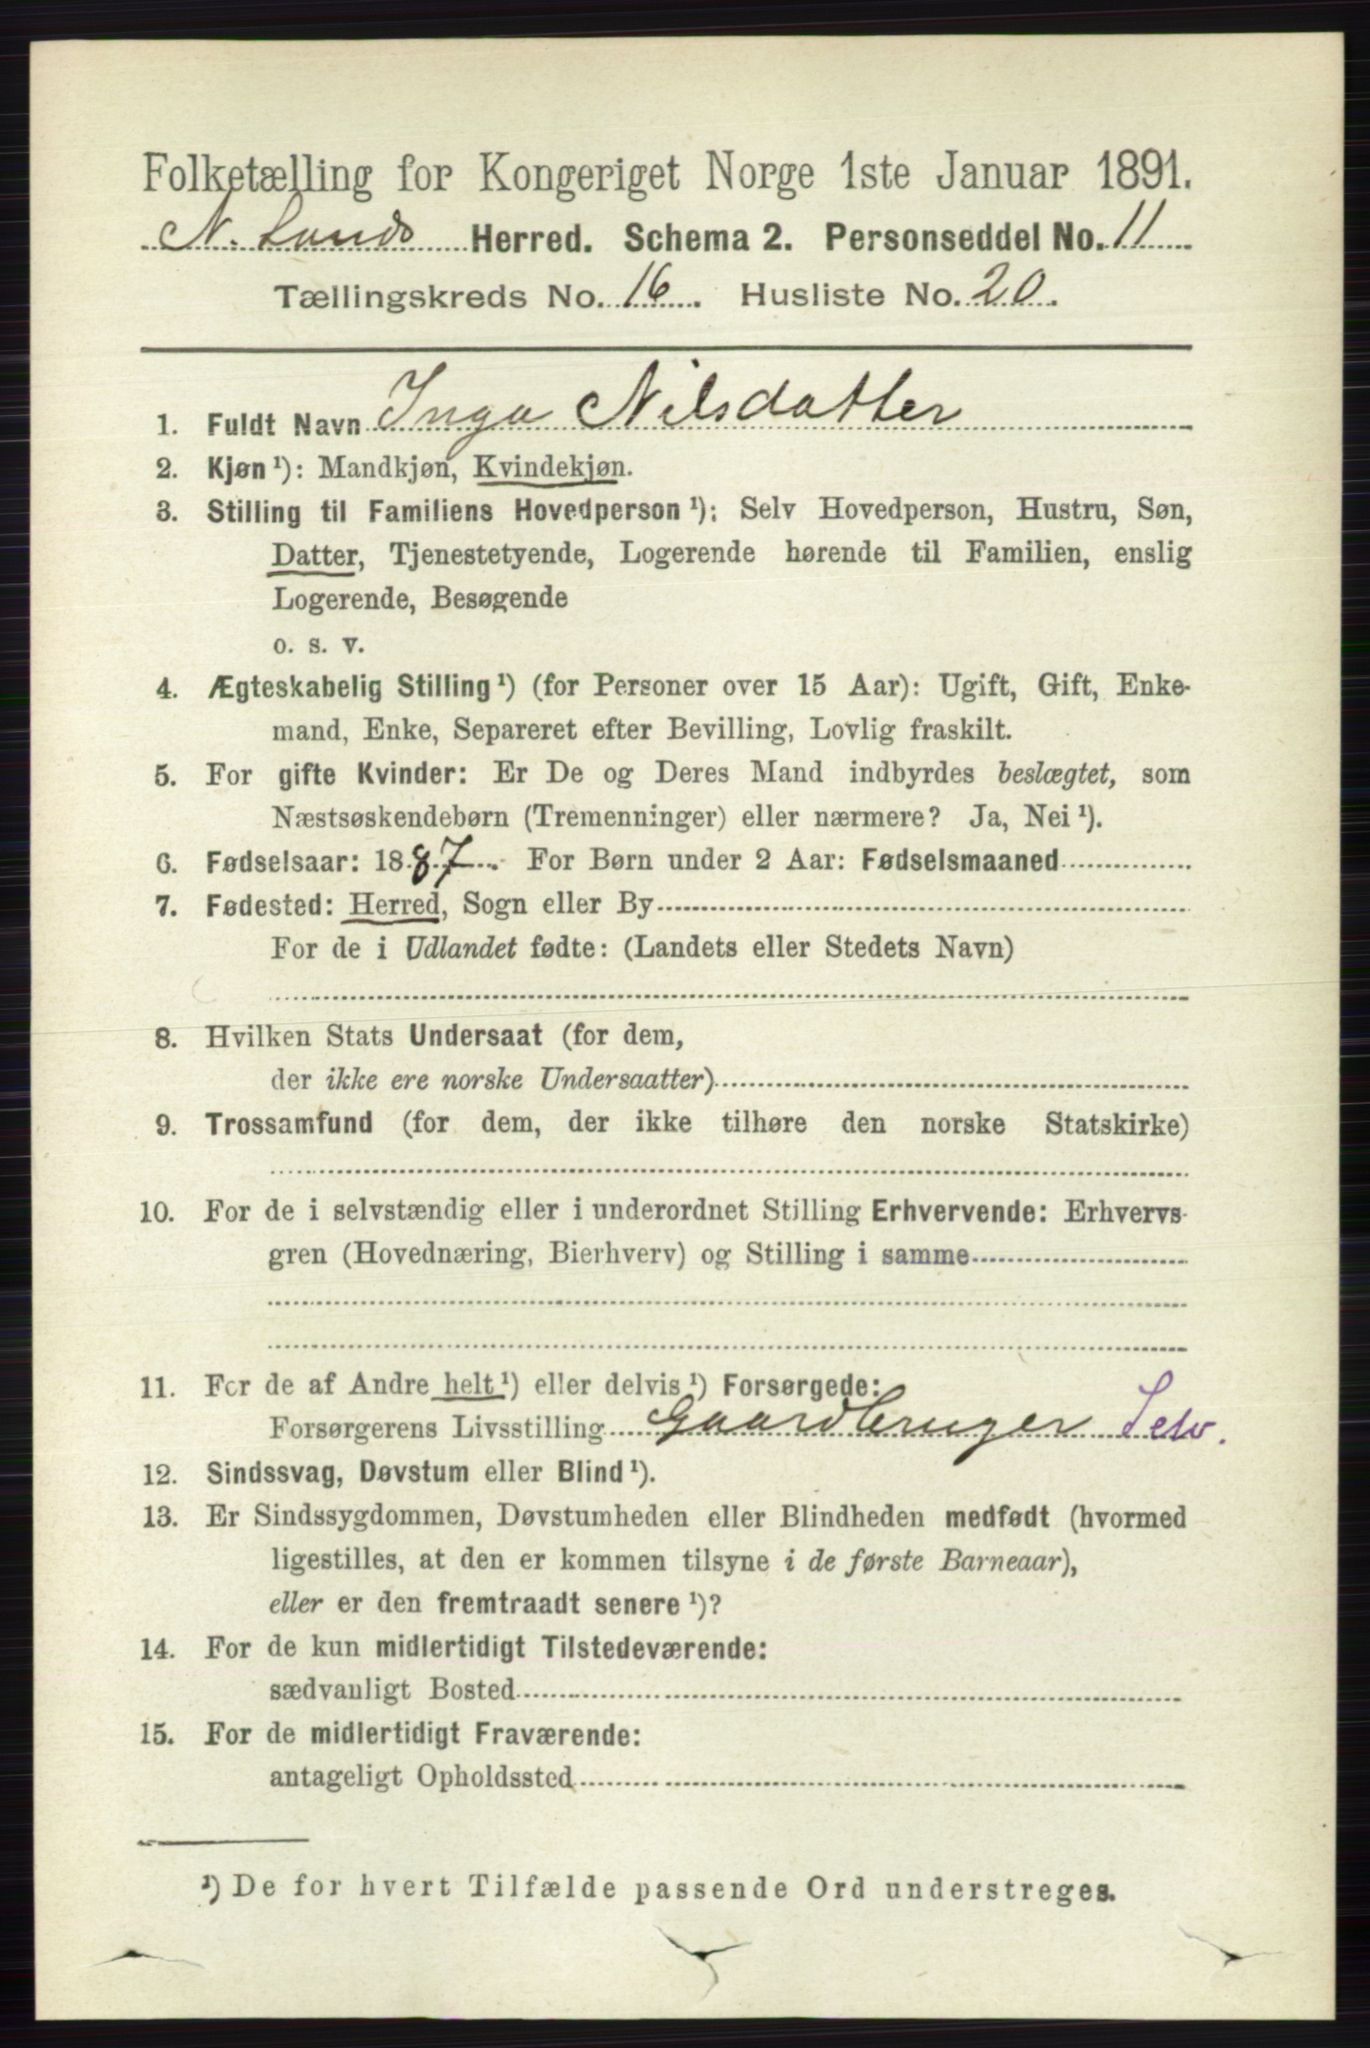 Folketælling for Kongeriget Norge 1ste Januar 1891.
N. Lands Herred. Schema 2. Personseddel No. 11
Tællingskreds No. 16. Husliste No. 20.
1. Fuldt Navn Inga Nilsdatter
2. Kjøn ¹): Mandkjøn, Kvindekjøn.
3. Stilling til Familiens Hovedperson ¹): Selv Hovedperson, Hustru, Søn,
Datter, Tjenestetyende, Logerende hørende til Familien, enslig
Logerende, Besøgende
o. s. v.
4. Ægteskabelig Stilling ¹) (for Personer over 15 Aar): Ugift, Gift, Enke-
mand, Enke, Separeret efter Bevilling, Lovlig fraskilt.
5. For gifte Kvinder: Er De og Deres Mand indbyrdes beslægtet, som
Næstsøskendebørn (Tremenninger) eller nærmere? Ja, Nei ¹).
6. Fødselsaar: 1887. For Børn under 2 Aar: Fødselsmaaned
7. Fødested: Herred, Sogn eller By
For de i Udlandet fødte: (Landets eller Stedets Navn)
8. Hvilken Stats Undersaat (for dem,
der ikke ere norske Undersaatter)
9. Trossamfund (for dem, der ikke tilhøre den norske Statskirke)
10. For de i selvstændig eller i underordnet Stilling Erhvervende: Erhvervs-
gren (Hovednæring, Bierhverv) og Stilling i samme
11. For de af Andre helt ¹) eller delvis ¹) Forsørgede:
Forsørgerens Livsstilling Gaardbruger Selv.
12. Sindssvag, Døvstum eller Blind ¹).
13. Er Sindssygdommen, Døvstumheden eller Blindheden medfødt (hvormed
ligestilles, at den er kommen tilsyne i de første Barneaar),
eller er den fremtraadt senere ¹)?
14. For de kun midlertidigt Tilstedeværende:
sædvanligt Bosted
15. For de midlertidigt Fraværende:
antageligt Opholdssted
¹) De for hvert Tilfælde passende Ord understreges.